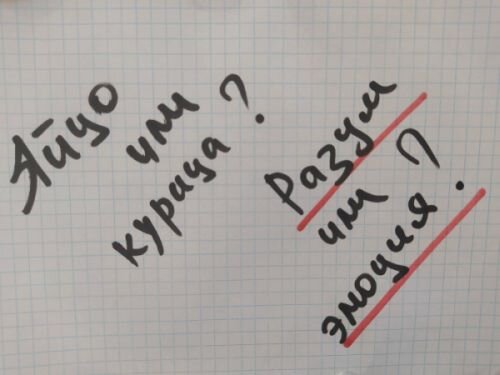 Яйцо
или
курица?
Разум
или?
эмоция.